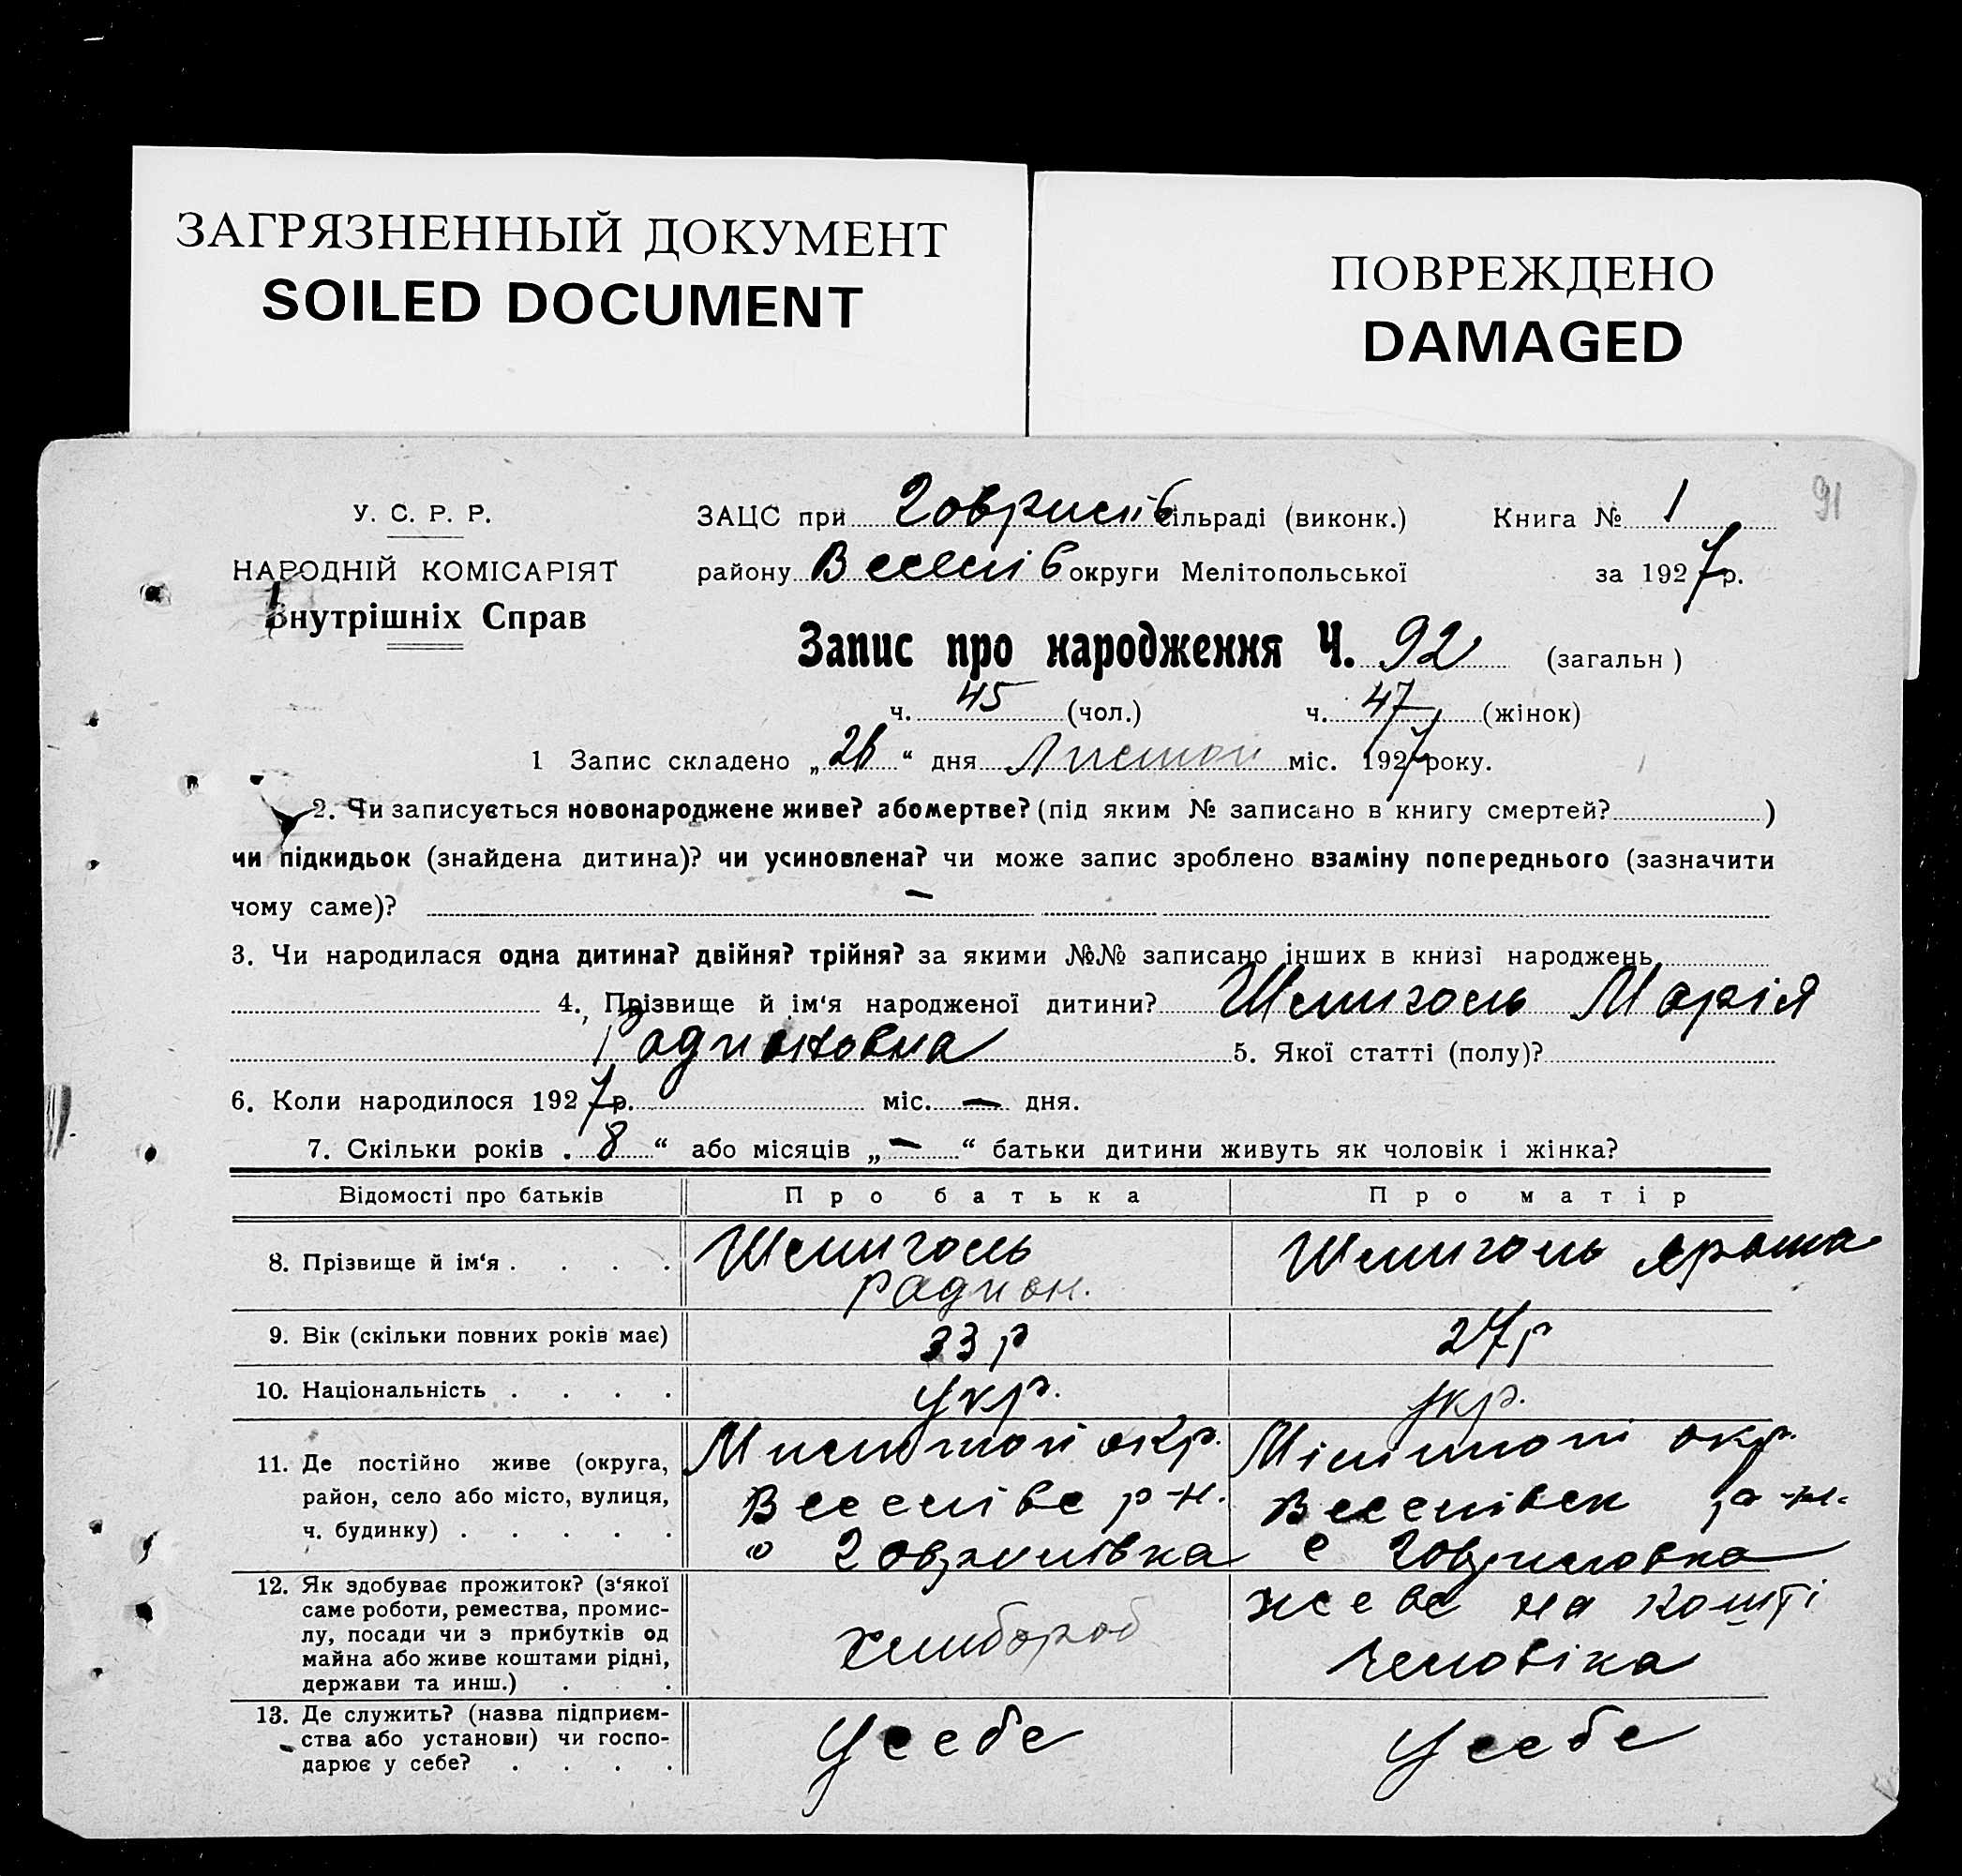 ЗАГРЯЗНЕННЫЙ ДОКУМЕНТ
SOILED DOCUMENT
ПОВРЕЖДЕНО
DAMAGED
91
У. С. Р. Р.
НАРОДНІЙ КОМІСАРІЯТ
Внутрішніх Справ
ЗАЦС при Гаврилів сільраді (виконк.) Книга № 1
району Веселів округи Мелітопольської за 1927 р.
Запис про народження Ч. 92 (загальн)
ч. 45 (чол.) ч. 47 (жінок)
1 Запис складено „26“ дня Листоп міс. 1927 року.
2. Чи записується новонароджене живе? або мертве? (під яким № записано в книгу смертей? )
чи підкидьок (знайдена дитина)? чи усиновлена? чи може запис зроблено взаміну попереднього (зазначити
чому саме)? —
3. Чи народилася одна дитина? двійня? трійня? за якими №№ записано інших в книзі народжень
4. Прізвище й ім‘я народженої дитини? Шелиголь Марія
Радионовна 5. Якої статті (полу)?
6. Коли народилося 1927 р. міс. — дня.
7. Скільки років „ 8 “ або місяців „ — “ батьки дитини живуть як чоловік і жінка?
Відомості про батьків Про батька Про матір
8. Прізвище й ім‘я . . . . Шелиголь Радион. Шелиголь
9. Вік (скільки повних років має) 33 р 27 р
10. Національність . . . . Укр. Укр.
11. Де постійно живе (округа, район, село або місто, вулиця, ч. будинку) . . . . . окр. Веселівс р-н. окр. Веселівск р-н. с
12. Як здобуває прожиток? (з‘якої саме роботи, ремества, промислу, посади чи з прибутків од майна або живе коштами рідні, держави та инш.) . . . хлибороб живе на кошті человіка
13. Де служить? (назва підприємства або установи) чи господарює у себе? . . . . У себе У себе